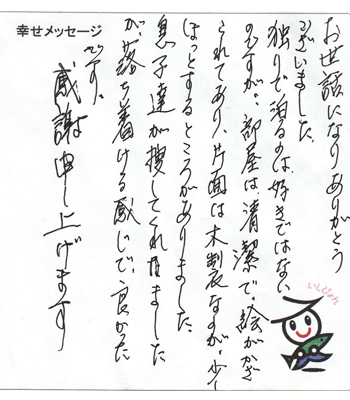 幸せメッセージ
お世話になりありがとう
ございました。
独りで泊るのは、好きではない
のですが、部屋は、清潔で、絵がかざ
られてあり、片面は木製なのが、少し
ほっとするところがありました。
息子達が捜してくれました
が、落ち着ける感じで、良かった
です。
感謝申し上げます